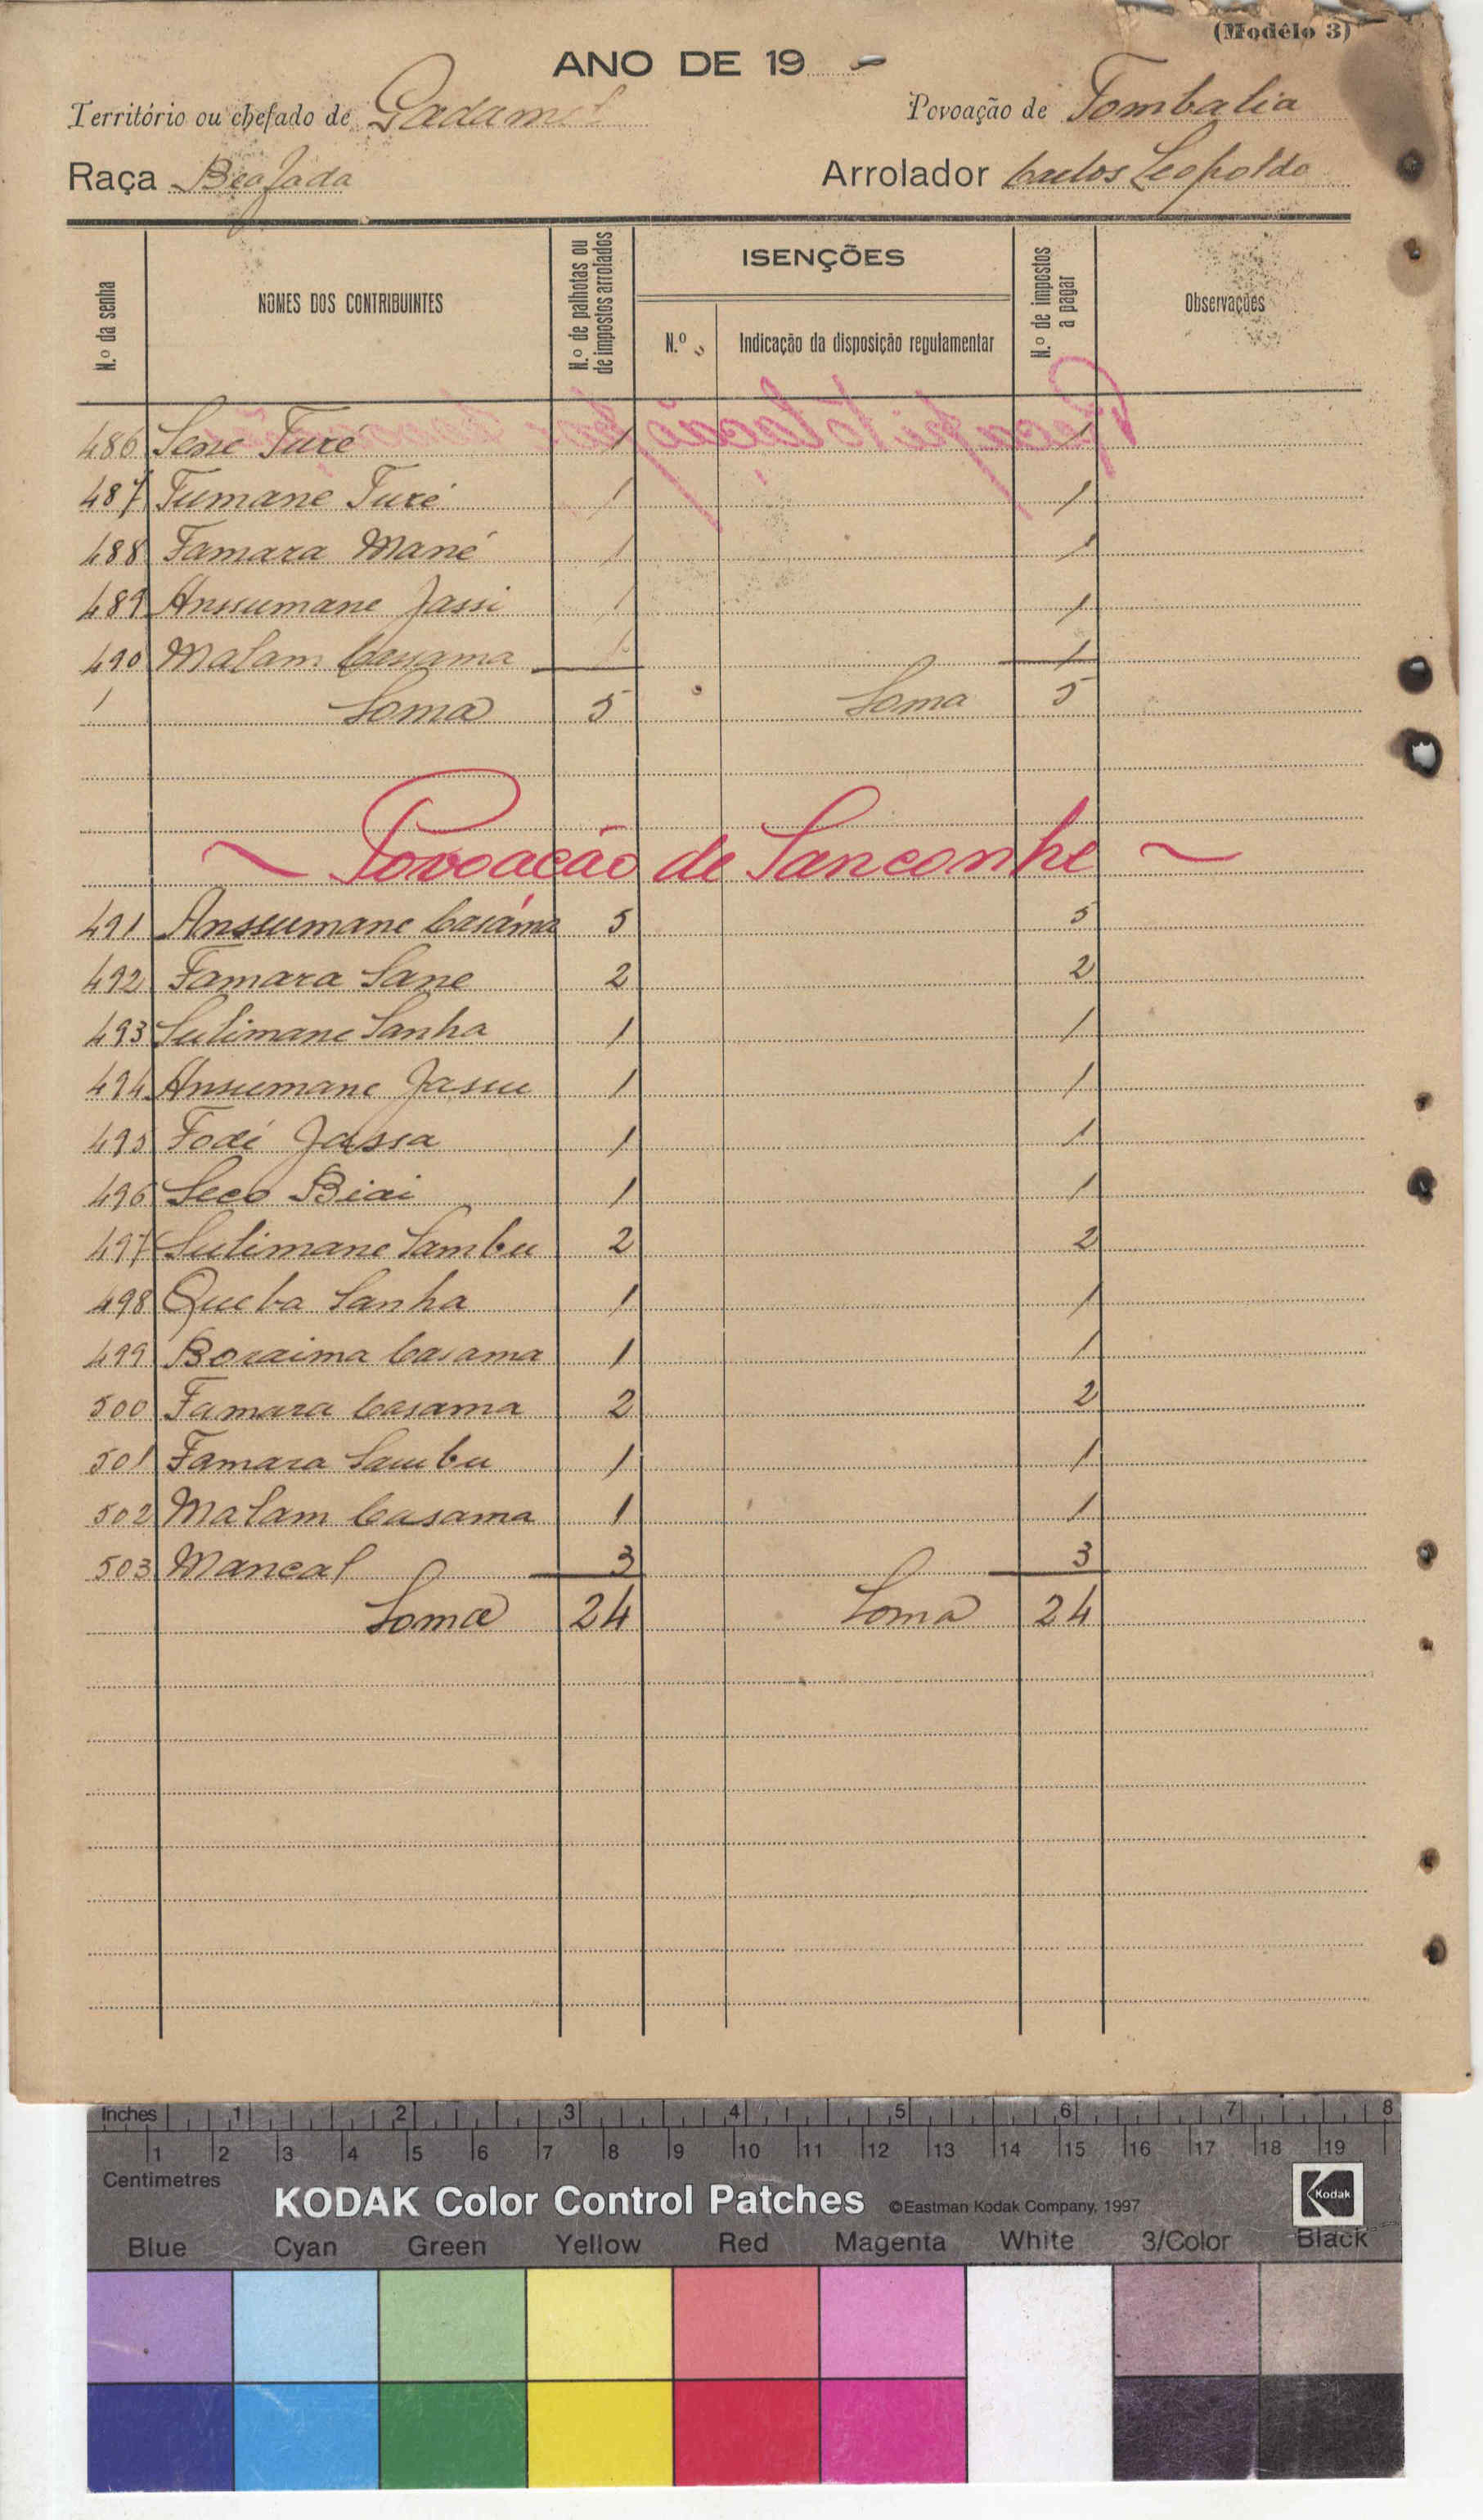 (Modêlo 3)
ANO DE 19 -
Território ou chefado de Gadamel Povoação de Tombalia
Raça Beafada Arrolador Carlos Leopoldo
N.º da senha
NOMES DOS CONTRIBUINTES
N.º de palhotas ou de impostos arrolados
ISENÇÕES
N.º
Indicação da disposição regulamentar
N.º de impostos a pagar
Observações
486 Sene Turé 1 1
487 Tumane Turé 1 1
488 Famara Mané 1 1
489 Anssumane Jassi 1 1
490 Malam Cassama 1 1
Soma 5 Soma 5
~ Povoação de Sanconhe ~
491 Anssumane Casáma 5 5
492 Famara Sane 2 2
493 Sulimane Sanha 1 1
494 Ansumane Jassu 1 1
495 Fodé Jassa 1 1
496 Seco Biai 1 1
497 Sulimane Sambu 2 2
498 Queba Sanha 1 1
499 Boraima Casama 1 1
500 Famara Casama 2 2
501 Famara Sambu 1 1
502 Malam Casama 1 1
503 Mancal 3 3
Soma 24 Soma 24
Inches 1 2 3 4 5 6 7 8
1 2 3 4 5 6 7 8 9 10 11 12 13 14 15 16 17 18 19
Centimetres
KODAK Color Control Patches ©Eastman Kodak Company, 1997 Kodak
Blue Cyan Green Yellow Red Magenta White 3/Color Black